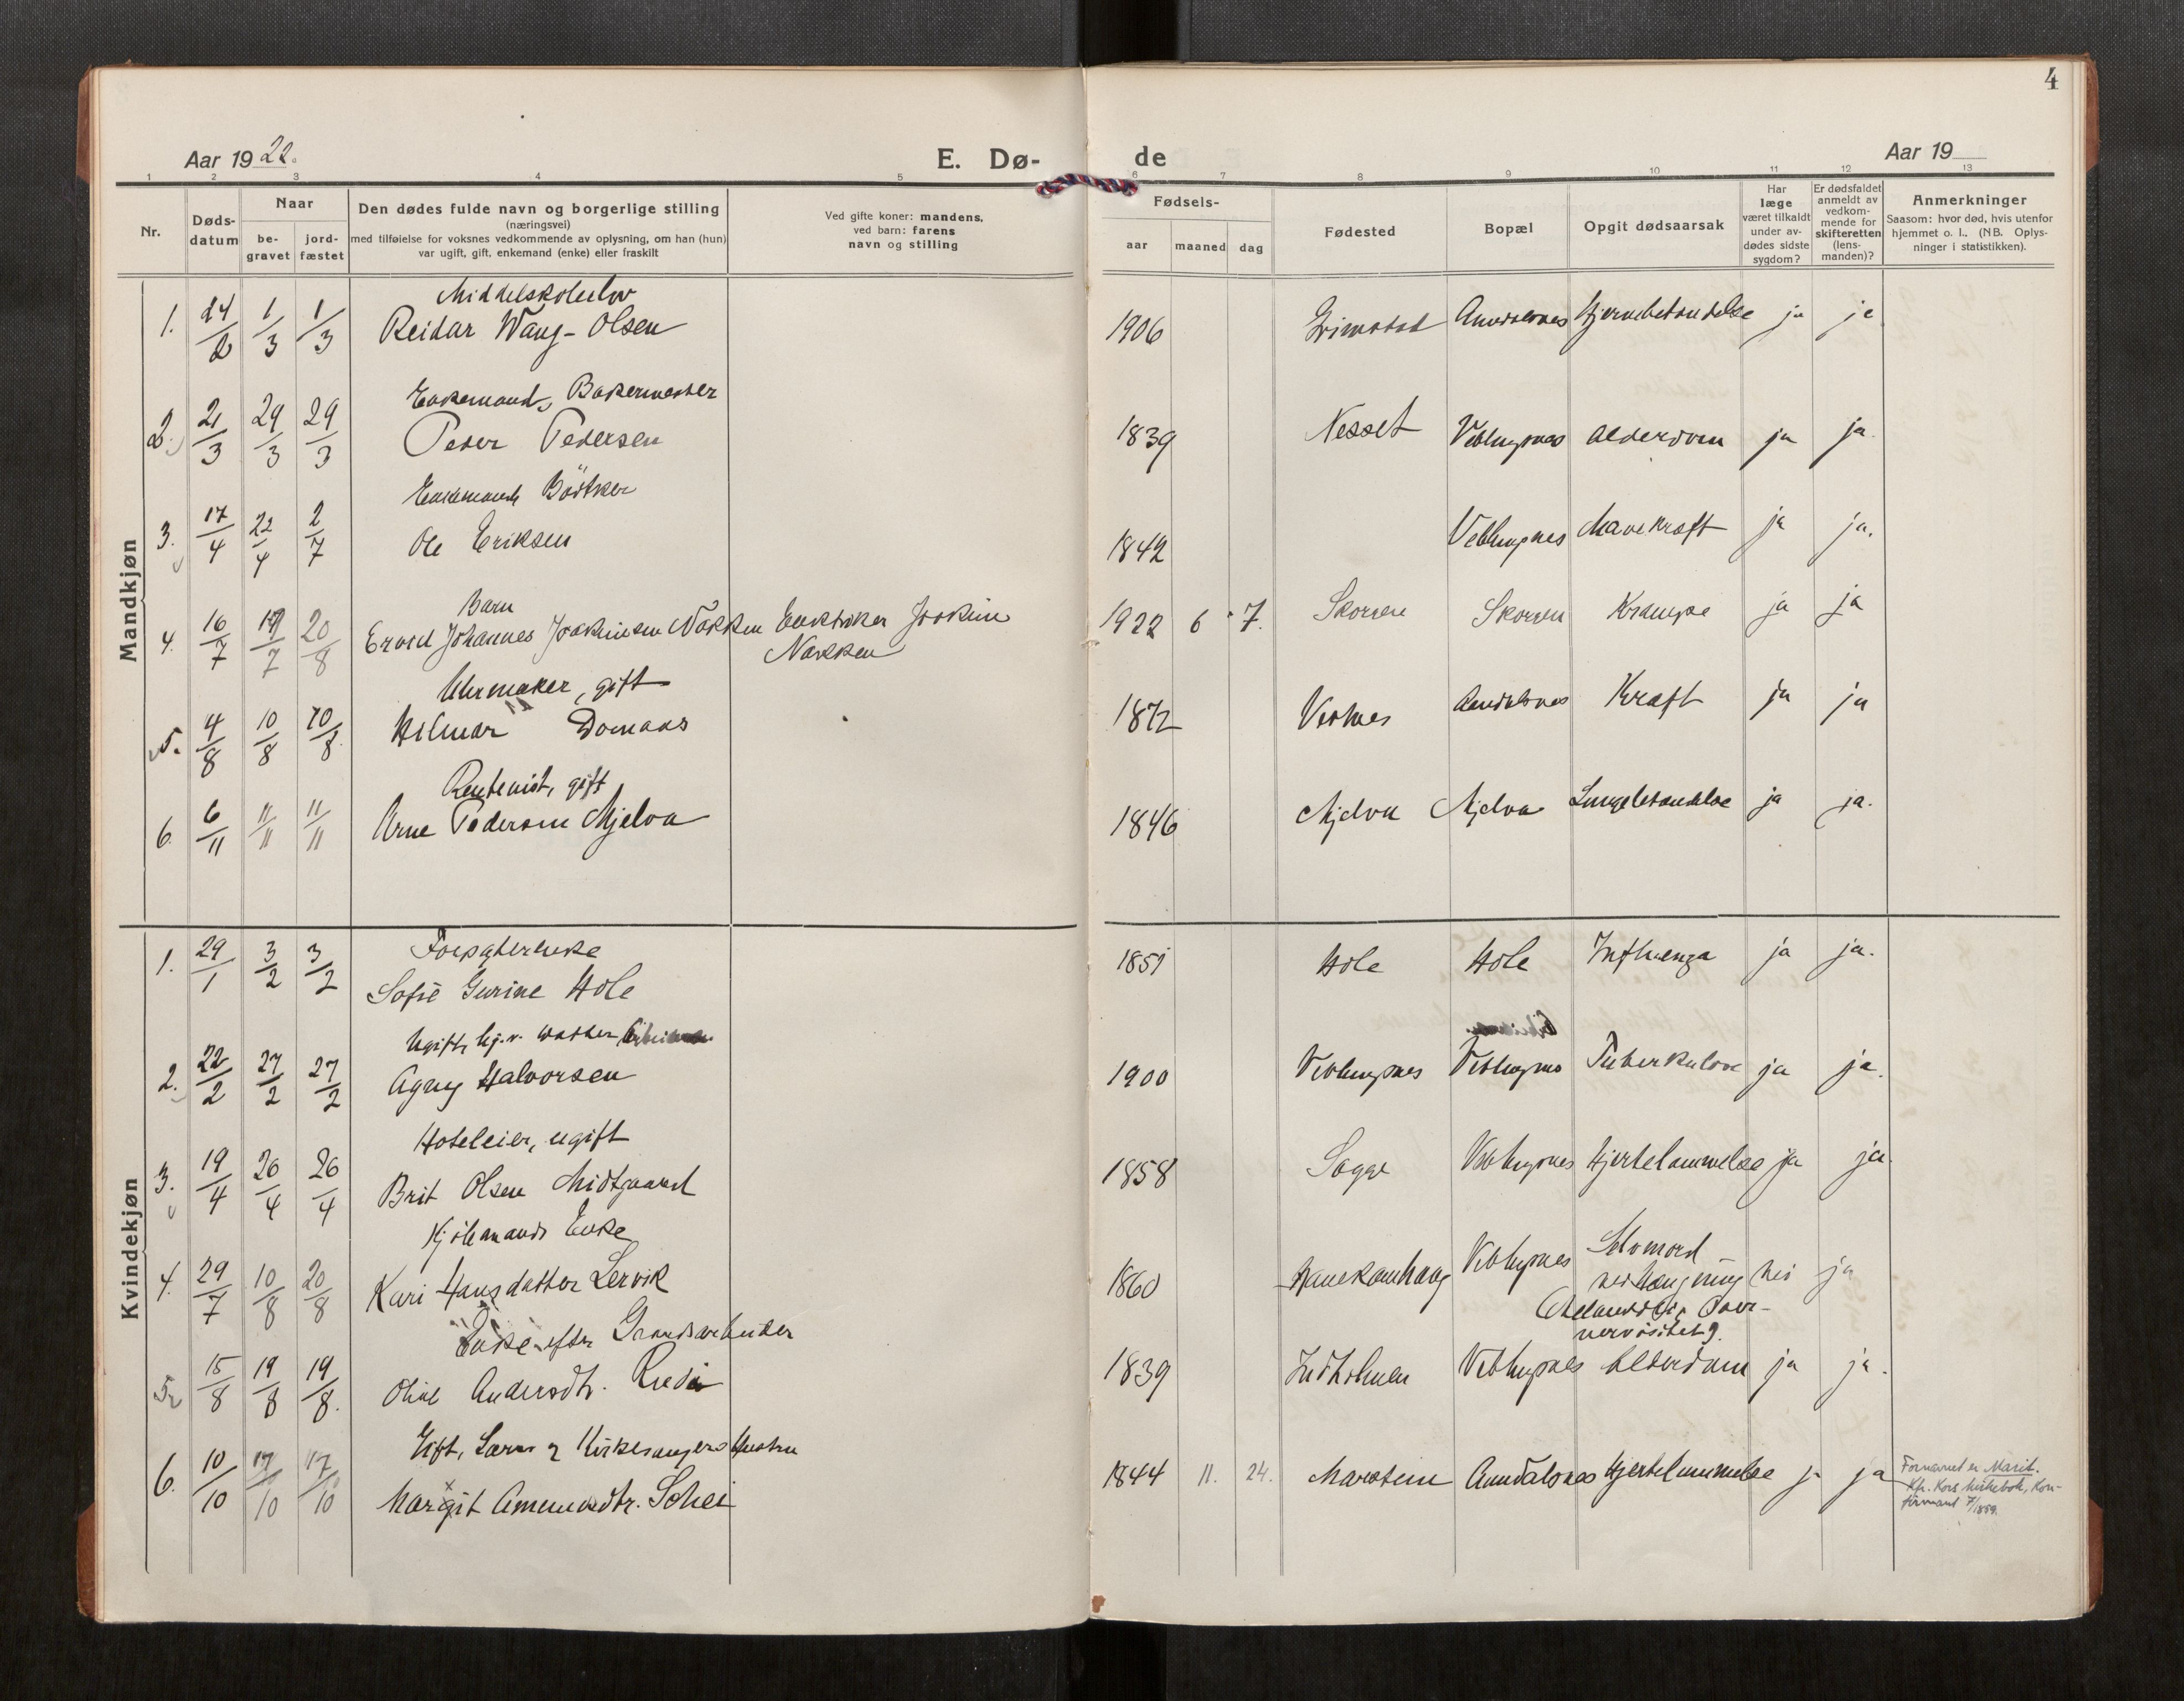 4
Aar 1922.
E. Dø-
de
Aar 19
1 2 3 4 5 6 7 8 9 10 11 12 13
Nr.
Døds-
datum
Naar
be-
gravet
jord-
fæstet
Den dødes fulde navn og borgerlige stilling
(næringsvei)
med tilføielse for voksnes vedkommende av oplysning, om han (hun)
var ugift, gift, enkemand (enke) eller fraskilt
Ved gifte koner: mandens,
ved barn: farens
navn og stilling
Fødsels-
aar maaned dag
Fødested
Bopæl
Opgit dødsaarsak
Har
læge
været tilkaldt
under av-
dødes sidste
sygdom?
Er dødsfaldet
anmeldt av
vedkom-
mende for
skifteretten
(lens-
manden)?
Anmerkninger
Saasom: hvor død, hvis utenfor
hjemmet o. l., (NB. Oplys-
ninger i statistikken).
Mandkjøn
Middelskoleelev
1. 24/2 1/3 1/3 Reidar Wang-Olsen 1906 Grimstad Aandalsnes Hjernebetændelse ja ja
Enkemand, Bakermester
2. 21/3 29/3 29/3 Peder Pedersen 1839 Nesset Veblungsnes Alderdom ja ja.
Enkemand Bödtker
3. 17/4 22/4 2/7 Ole Eriksen 1842 Veblungsnes Mavekræft ja ja.
Barn
4. 16/7 19/7 20/8 Johannes Joakimsen Nokken Joakim 1922 6 7. Skorgen Skorgen Krampe ja ja
Nokken
Uhrmaker, gift
5. 4/8 10/8 10/8 Hilmar Domaas 1872 Vestnes Aandalsnes Kræft ja ja
Rentenist, gift
6. 6/11 11/11 11/11 Arne Pedersen Mjelva 1846 Mjelva Mjelva Lungebetændelse ja ja.
Kvindekjøn
1. 29/1 3/2 3/2 1851 Hole Hole Influenza ja ja.
Sofie Gurine Hole
Ugift, hj.v. datter
2. 22/2 27/2 27/2 Agny Halvorsen 1900 Veblungsnes Veblungsnes Tuberkulose ja ja.
Hoteleier, ugift
3. 19/4 26/4 26/4 Brit Olsen Midtgaard 1858 Sogge Veblungsnes Hjertelammelse ja ja.
Kjøbmands Enke
4. 29/7 10/8 20/8 Kari Hansdatter Lervik 1860 Hanekamhaug Veblungsnes Selvmord
ved hængning nei ja
nervøsitet).
Enke efter Gaardsarbeider
5. 15/8 19/8 19/8 Oline Andersdtr. 1839 Indholmen Veblungsnes Alderdom ja ja.
Gift, Lærer & Kirkesangers Hustru
6. 10/10 17/10 17/10 Margit Amundsdtr. Schei 1844 11. 24. Marstein Aandalsnes Hjertelammelse ja ja
Fornavnet er Marit.
Kfr. Kors kirkebok, Kon-
firmant 7/1859.